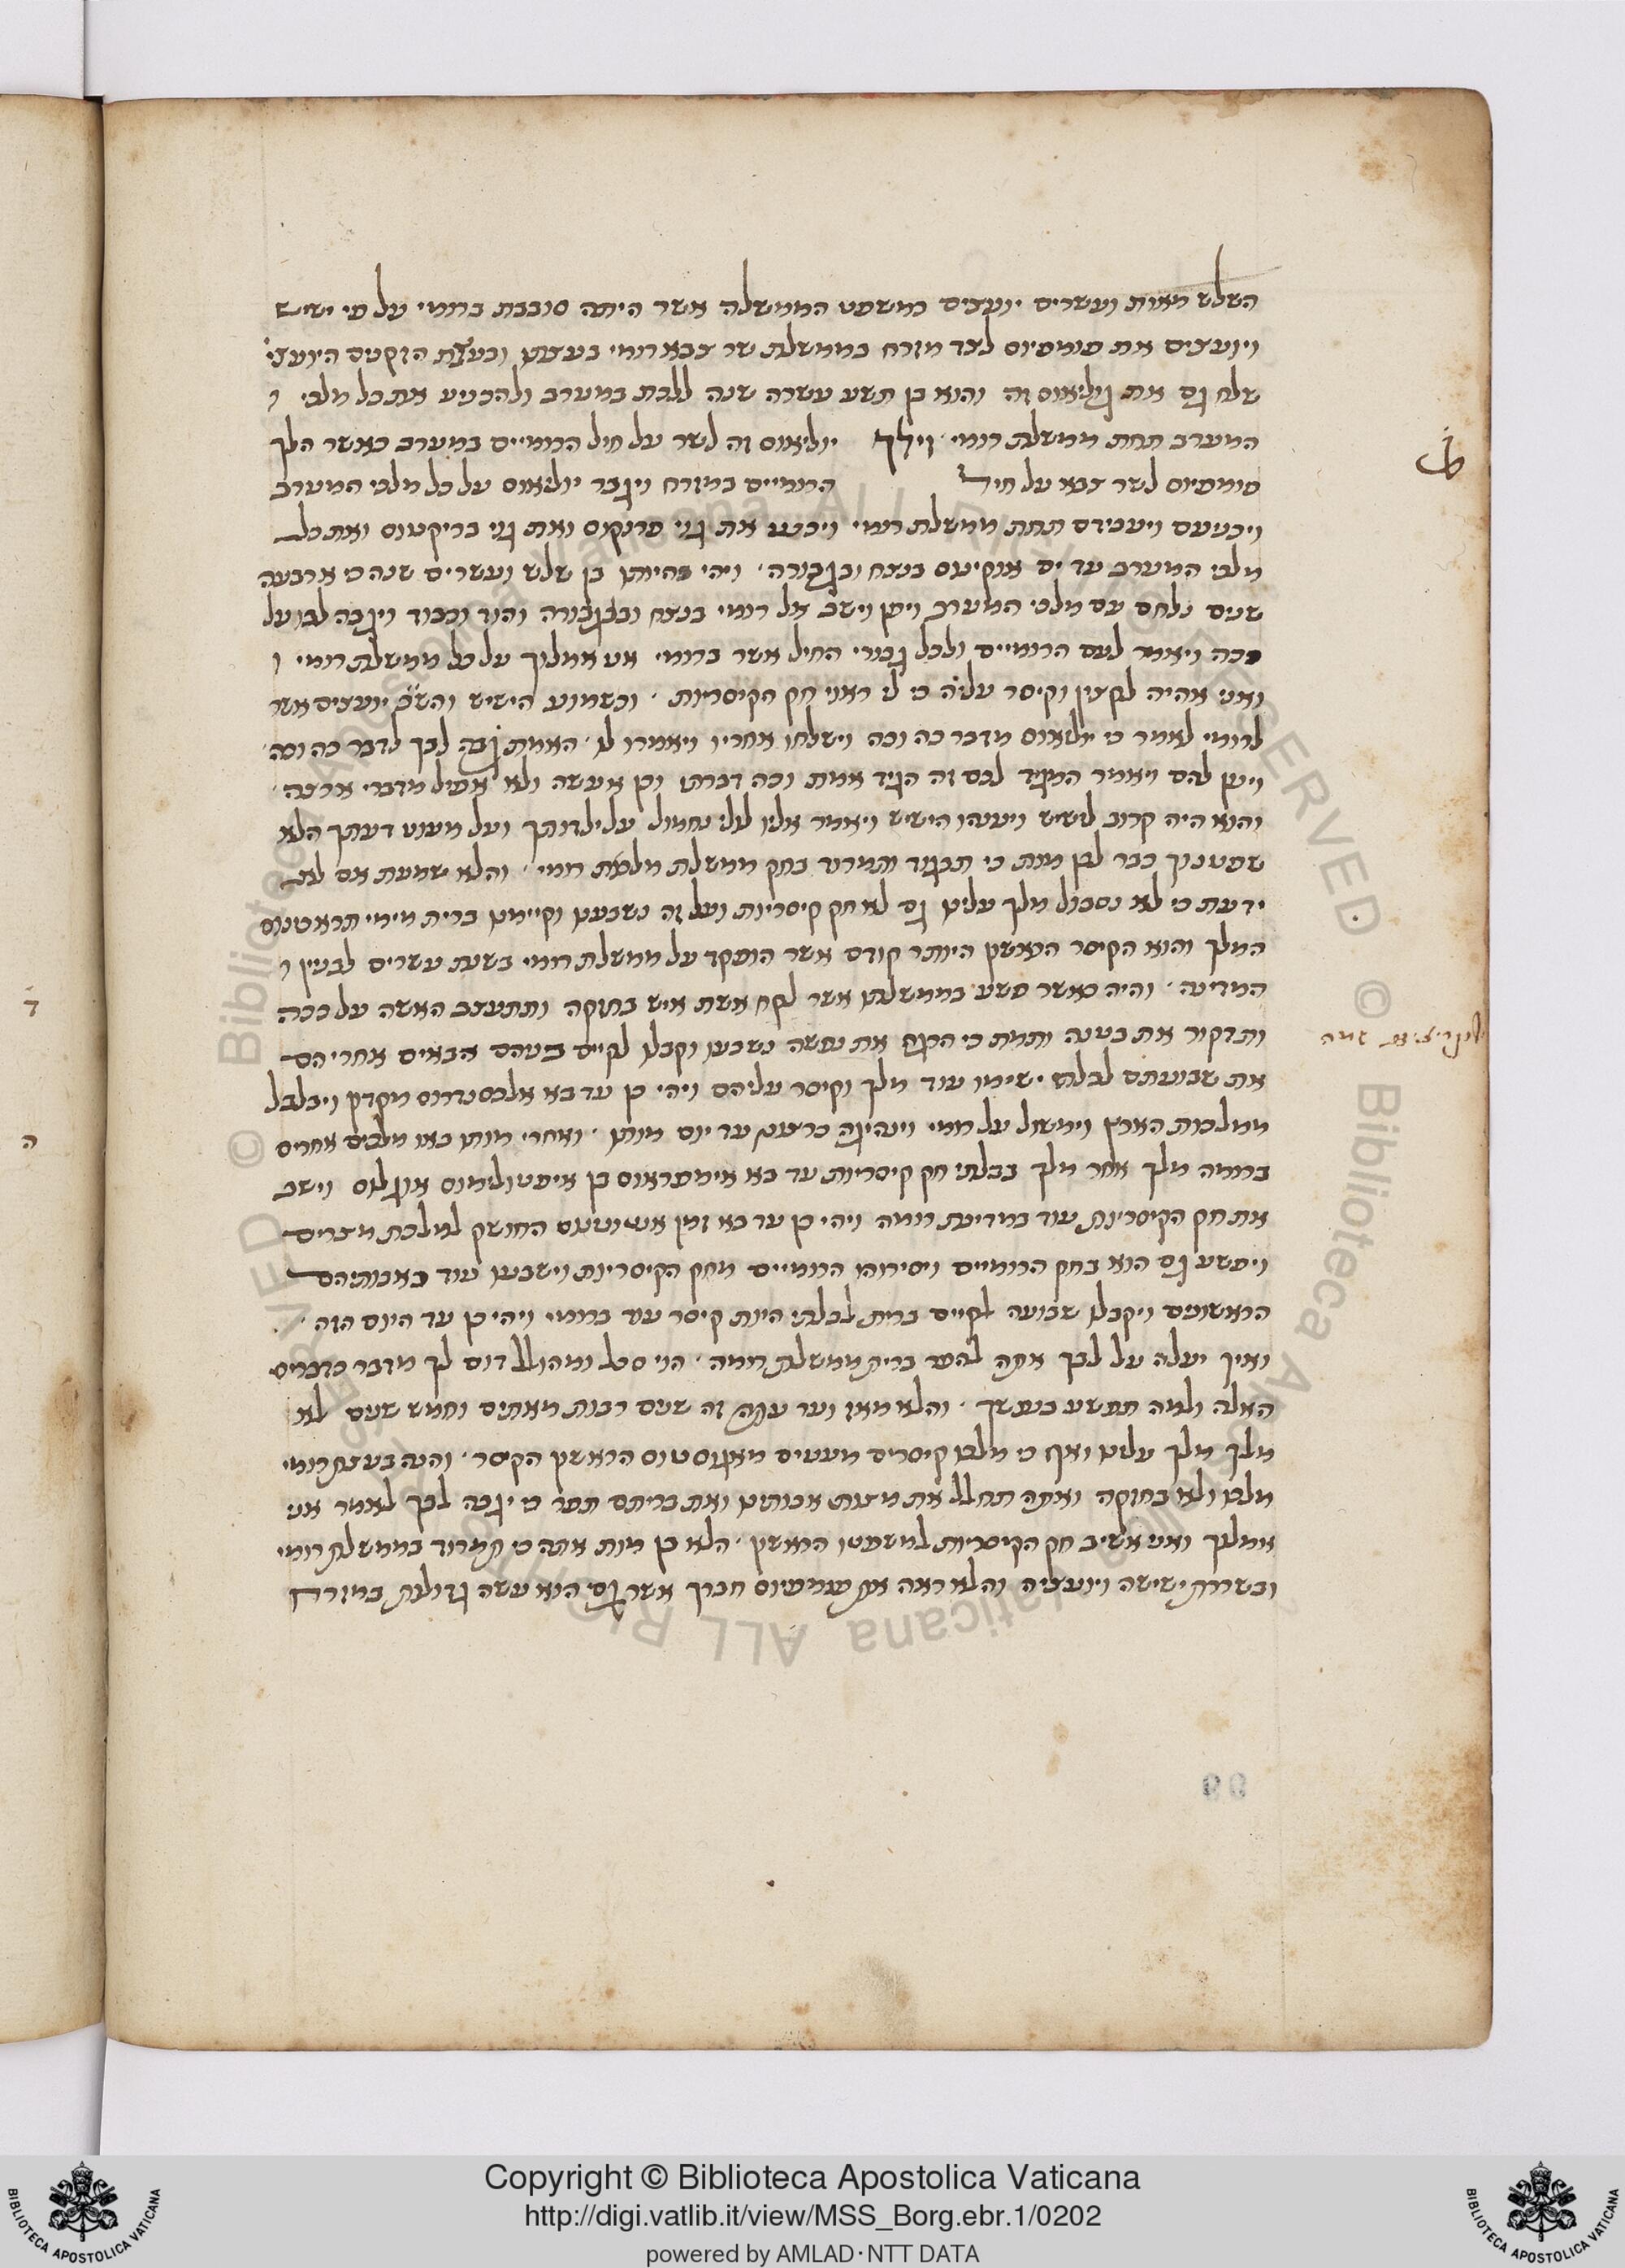 השלש מאות ועשרים יועצים כמשפט הממשלה אשר היתה סובבת ברומי על פי ישיש
ויועצים את פומפיוס לצד מזרח בממשלת שר צבא רומי בעצתו ובעצת הזקנים היועצי'
שלח גם את גוליאוס זה והוא בן תשע עשרה שנה ללכת במערב ולהכניע את כל מלכי
המערב תחת ממשלת רומי וילך יוליאוס זה לשר על חיל הרומיים במערב כאשר הלך
פומפיוס לשר צבא על חיל הרומיים במזרח ויגבר יוליאוס על כל מלכי המערב
ויכניעם ויעבידם תחת ממשלת רומי ויכנע את גוי פרנקוס ואת גוי בריטנוס ואת כל
מלכי המערב עד ים אוקינוס בנצח ובגבורה ויהי בהיותו בן שלש ועשרים שנה כי ארבעה
שנים נלחם עם מלכי המערב וישב אל רומי בנצח ובגבורה והוד וכבוד ויגבה לבו על
ככה ויאמר לעם הרומיים ולכל גבורי החיל אשר ברומי אני אמלוך על כל ממשלת רומי
ואני אהיה לקצין וקיסר עליה כי לי ראוי חק הקיסריות וכשמוע הישיש והש"כ יועצים אשר
לרומי לאמר כי יוליאוס מדבר כה וכה וישלחו אחריו ויאמרו לו האמת גבה לבך לדבר כה וכה
ויען להם ויאמר המגיד לכם זה הגיד אמת וכה דברתי וכן אעשה ולא אפיל מדברי ארצה
והוא היה קרוב לישיש ויענהו הישיש ויאמר אליו לולי נחמול על ילדותך ועל מעוט דעתך הלא
שפטנוך כבר לבן מות כי תבגוד ותמרוד בחק ממשלת מלכות רומי והלא שמעת אם לא
ידעת כי לא נסבול מלך עלינו גם לא חק קיסריות ועל זה נשבענו וקיימנו ברית מימי
המלך והוא הקיסר הראשון היותר קודם אשר הופקד על ממשלת רומי בשנת עשרים לבנין
המדינה והיה כאשר פשע בממשלתו אשר לקח אשת איש בחזקה ותתעצב האשה על ככה
ותדקור את בטנה ותמת כי הרגה את נפשה נשבעו וקבלו לקיים בניהם הבאים אחריהם
את שבועתם לבלתי ישימו עוד מלך וקיסר עליהם ויהי כן עד בא אלכסנדרוס מקדון ויבלבל
ממלכות הארץ וימשול על רומי וינהיגה כרצונו עד יום מותו ואחרי מותו באו מלכים אחרים
ברומה מלך אחר מלך בבלתי חק קיסריות עד בא אימפראוס בן איפטולימוס וישב
את חק הקיסריות עוד במדינת רומה ויהי כן עד בא זמן החושק למלכת מצרים
ויפשע גם הוא בחק הרומיים ויסירוהו הרומיים מחק הקיסריות וישבעו עוד כאבותיהם
הראשונים ויקבלו שבועה לקיים ברית לבלתי היות קיסר עוד ברומי ויהי כן עד היום הזה
ואיך יעלה על לבך אתה להפר ברית ממשלת רומה הוי סכל ומהולל דום לך מדבר כדברים
האלה ולמה תפשע בנפשך והלא מאז ועד עתה זה שנים רבות מאתים וחמש שנים לא
מלך מלך עלינו ואף כי מלכו קיסרים מעטים מאגוסטוס הראשון הקיסר והנה בעצת רומי
מלכו ולא בחזקה ואתה תחלל את מצות אבותינו ואת בריתם תפר כי יגבה לבך לאמר אני
אמלוך ואני אשיב חק הקיסריות למשפטו הראשון הלא בן מות אתה כי תמרוד בממשלת רומי
ובשררת ישישה ויועציה והלא ראה את פומפיוס חברך אשר גם הוא עשה גדולות במזרח
ד
ה
Copyright © Biblioteca Apostolica Vaticana
http://digi.vatlib.it/view/MSS_Borg.ebr.1/0202
powered by AMLAD·NTT DATA
BIBLIOTECA APOSTOLICA VATICANA
BIBLIOTECA APOSTOLICA VATICANA